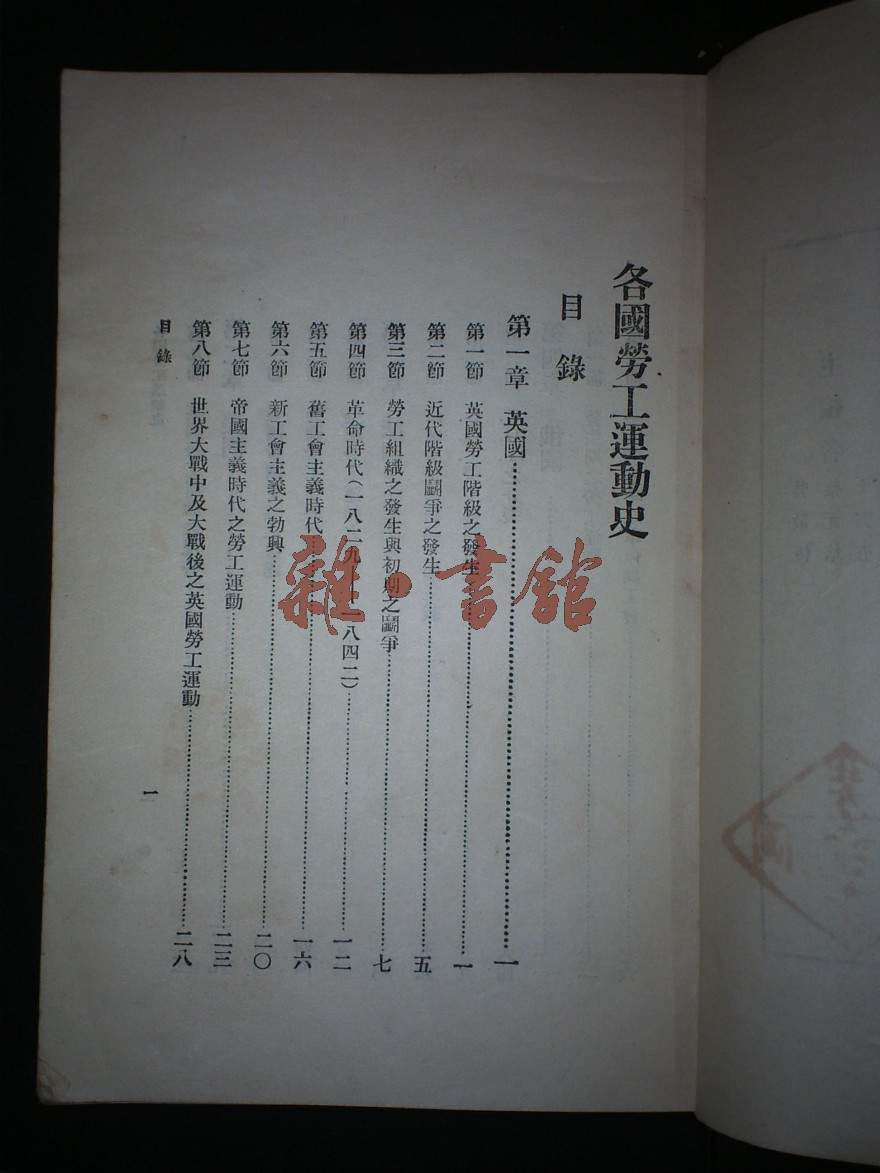 各國勞工運動史
目錄
第一章 英國⋯⋯⋯⋯⋯⋯⋯⋯一
第一節 英國勞工階級之發生⋯⋯⋯⋯⋯⋯⋯⋯一
第二節 近代階級鬭爭之發生⋯⋯⋯⋯⋯⋯⋯⋯五
第三節 勞工組織之發生與初期之鬭爭⋯⋯⋯⋯⋯⋯⋯⋯七
第四節 革命時代(一八二九—一八四二)⋯⋯⋯⋯⋯⋯⋯⋯一二
第五節 舊工會主義時代⋯⋯⋯⋯⋯⋯⋯⋯一六
第六節 新工會主義之勃興⋯⋯⋯⋯⋯⋯⋯⋯二〇
第七節 帝國主義時代之勞工運動⋯⋯⋯⋯⋯⋯⋯⋯二三
第八節 世界大戰中及大戰後之英國勞工運動⋯⋯⋯⋯⋯⋯⋯⋯二八
目錄
一
雜·書館